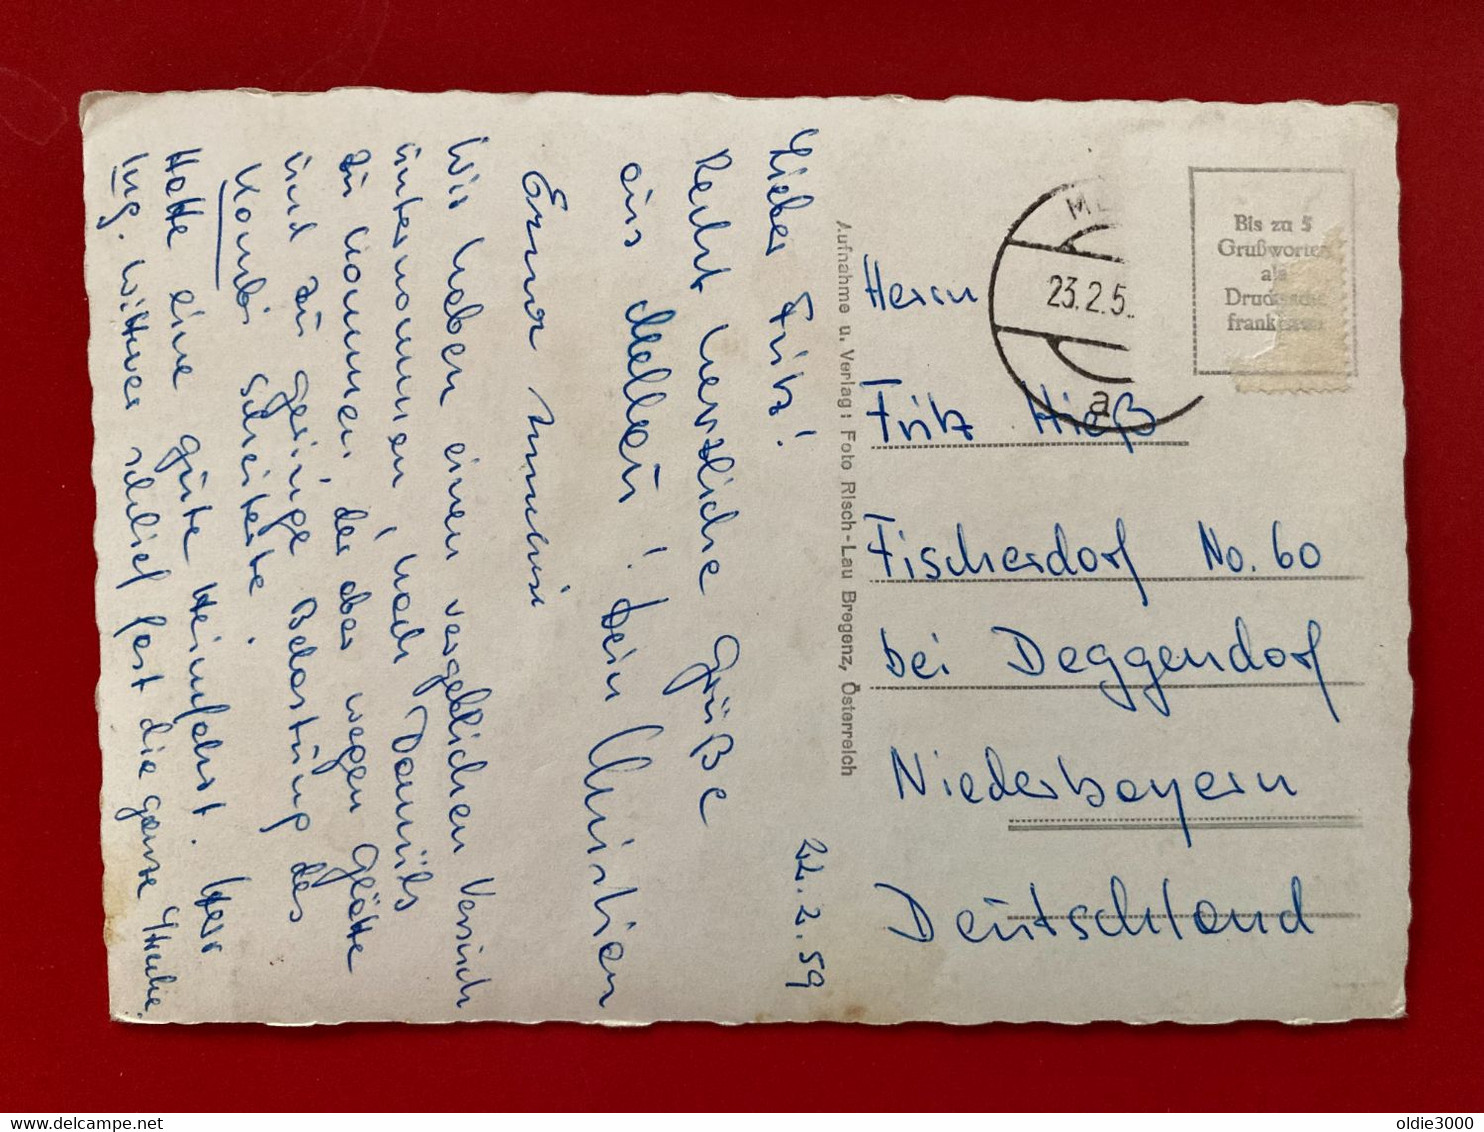 22.2.59
Lieber Fritz!
Recht herzliche Grüße
aus Mellau! Dein Christian
Erna
Wir haben einen vergeblichen Versuch
unternommen, nach Damüls
zu kommen, der aber wegen Glätte
und zu geringe Belastung des
Kombi scheiterte.
Hatte eine gute Heimfahrt. Herr
Ing. Wittwer schlief fast die ganze Strecke.
Aufnahme u. Verlag: Foto Risch-Lau Bregenz, Österreich
23.2.5
a
Bis zu 5
Grußworten
als
Drucksache
frankieren
Herrn
Fritz Hieß
Fischerdorf No. 60
bei Deggendorf
Niederbayern
Deutschland
oldie3000